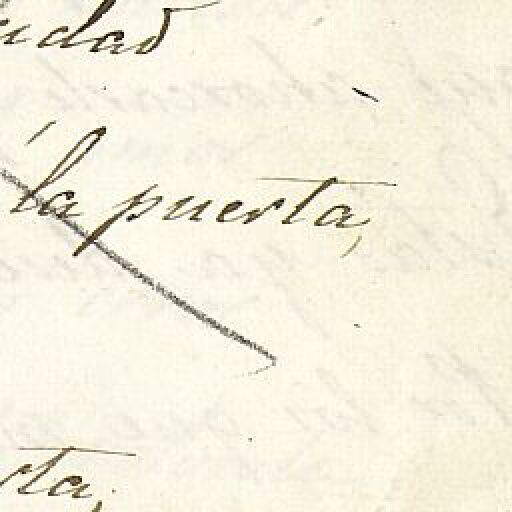 udad
la puerta,
rta;